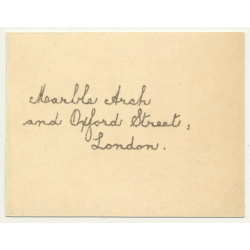 Marble Arch
and Oxford Street,
London.